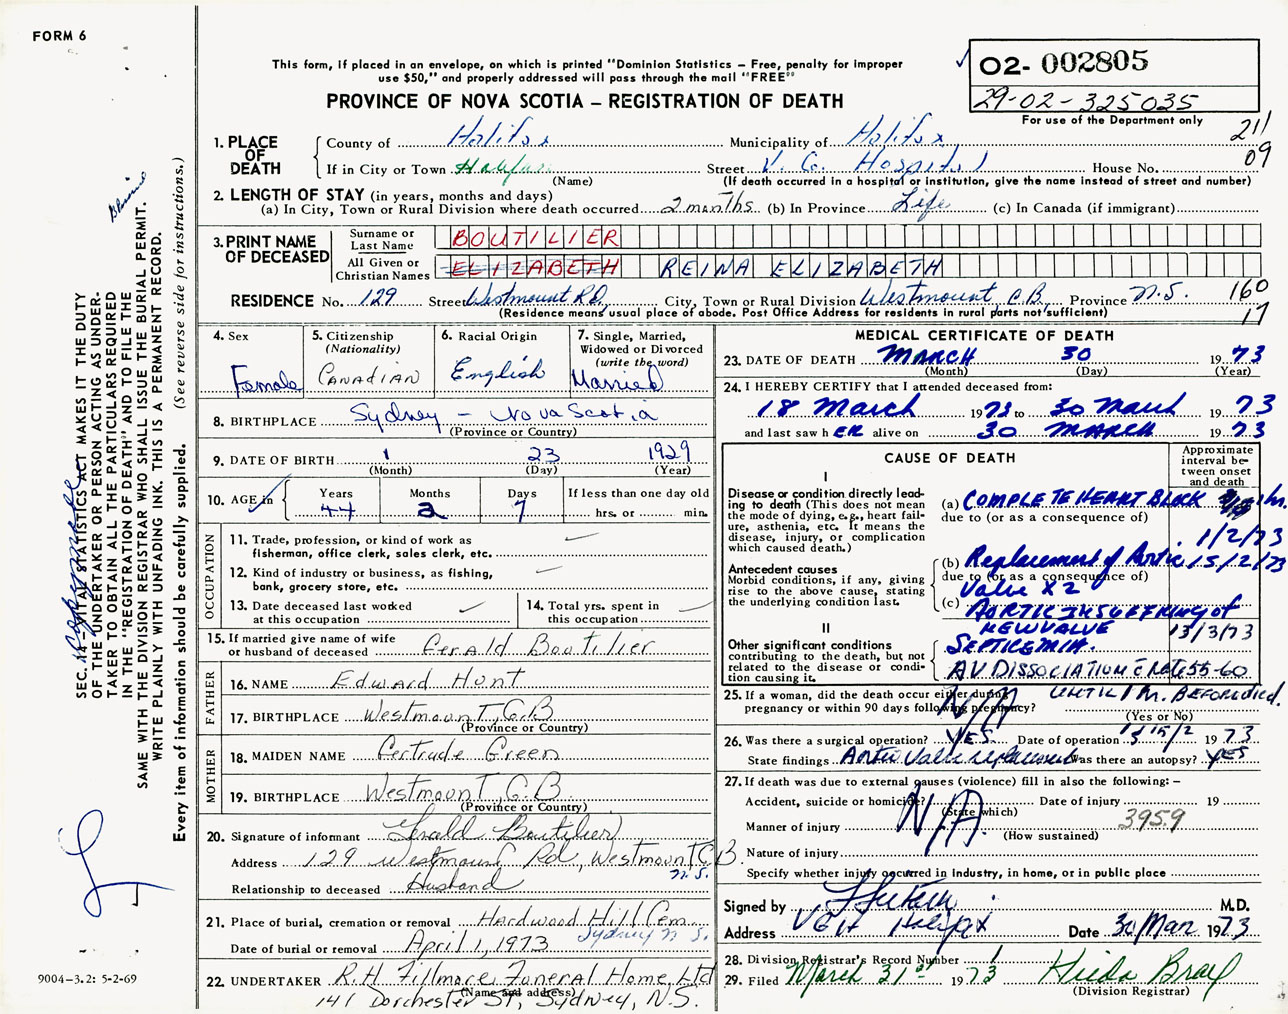 FORM 6
This form, if placed in an envelope, on which is printed "Dominion Statistics – Free, penalty for improper
use $50," and properly addressed will pass through the mail "FREE"
PROVINCE OF NOVA SCOTIA – REGISTRATION OF DEATH
O2- 002805
29-02-325035
For use of the Department only
211
09
1. PLACE OF DEATH
County of Halifax Municipality of Halifax
If in City or Town Halifax Street V. G. Hospital House No.
(Name) (If death occurred in a hospital or institution, give the name instead of street and number)
2. LENGTH OF STAY (in years, months and days)
(a) In City, Town or Rural Division where death occurred 2 months (b) In Province Life (c) In Canada (if immigrant)
3. PRINT NAME OF DECEASED
Surname or Last Name BOUTILIER
All Given or Christian Names ELIZABETH REINA ELIZABETH
RESIDENCE No. 129 Street Westmount Rd, City, Town or Rural Division Westmount, C.B. Province N.S.
(Residence means usual place of abode. Post Office Address for residents in rural parts not sufficient)
160
17
4. Sex Female
5. Citizenship (Nationality) CANADIAN
6. Racial Origin English
7. Single, Married, Widowed or Divorced (write the word) Married
8. BIRTHPLACE Sydney – Nova Scotia
(Province or Country)
9. DATE OF BIRTH 1 23 1929
(Month) (Day) (Year)
10. AGE in Years 44 Months 2 Days 7 If less than one day old
hrs. or min.
OCCUPATION
11. Trade, profession, or kind of work as
fisherman, office clerk, sales clerk, etc.
12. Kind of industry or business, as fishing,
bank, grocery store, etc.
13. Date deceased last worked
at this occupation
14. Total yrs. spent in
this occupation
15. If married give name of wife
or husband of deceased Gerald Boutilier
FATHER
16. NAME Edward Hunt
17. BIRTHPLACE Westmount, C.B.
(Province or Country)
MOTHER
18. MAIDEN NAME Gertrude Green
19. BIRTHPLACE Westmount C.B.
(Province or Country)
20. Signature of informant Gerald Boutilier
Address 129 Westmount Rd, Westmount C.B.
N.S.
Relationship to deceased Husband
21. Place of burial, cremation or removal Hardwood Hill Cem.
Sydney N S.
Date of burial or removal April 1, 1973
22. UNDERTAKER R.H. Fillmore Funeral Home Ltd
(Name and address)
141 Dorchester St, Sydney, N.S.
MEDICAL CERTIFICATE OF DEATH
23. DATE OF DEATH MARCH 30 1973
(Month) (Day) (Year)
24. I HEREBY CERTIFY that I attended deceased from:
18 March 1973 to 30 March 1973
and last saw h ER alive on 30 MARCH 1973
CAUSE OF DEATH
Approximate interval between onset and death
I
Disease or condition directly leading to death (This does not
mean the mode of dying, e.g., heart failure, asthenia, etc. It means the
disease, injury, or complication
which caused death.)
(a) COMPLETE HEART BLOCK 1 hr.
due to (or as a consequence of)
1/2/73
Antecedent causes
Morbid conditions, if any, giving
rise to the above cause, stating
the underlying condition last.
(b) Replacement of Aortic 15/2/73
due to (or as a consequence of)
Valve X 2
(c) AORTIC INSUFFIENCY of
NEW VALVE 13/3/73
II
Other significant conditions
contributing to the death, but not
related to the disease or condition causing it.
SEPTICEMIA.
AV DISSOCIATION c̄ RATE 55-60
UNTIL 1 hr. BEFORE died.
25. If a woman, did the death occur either during
pregnancy or within 90 days following pregnancy? N/A
(Yes or No)
26. Was there a surgical operation? YES Date of operation 15/2 1973
State findings Aortic Valve replacement Was there an autopsy? YES
27. If death was due to external causes (violence) fill in also the following:–
Accident, suicide or homicide? N/A Date of injury 19
(State which)
Manner of injury 3959
(How sustained)
Nature of injury
Specify whether injury occurred in Industry, in home, or in public place
Signed by M.D.
Address VGH Halifax Date 30 Mar 1973
28. Division Registrar's Record Number 1
29. Filed March 31st 1973 Hilda Bray
(Division Registrar)
SEC. 14 – VITAL STATISTICS ACT MAKES IT THE DUTY
OF THE UNDERTAKER OR PERSON ACTING AS UNDER-
TAKER TO OBTAIN ALL THE PARTICULARS REQUIRED
IN THE "REGISTRATION OF DEATH" AND TO FILE THE
SAME WITH THE DIVISION REGISTRAR WHO SHALL ISSUE THE BURIAL PERMIT.
WRITE PLAINLY WITH UNFADING INK. THIS IS A PERMANENT RECORD.
Every item of information should be carefully supplied. (See reverse side for instructions.)
9004–3.2: 5-2-69